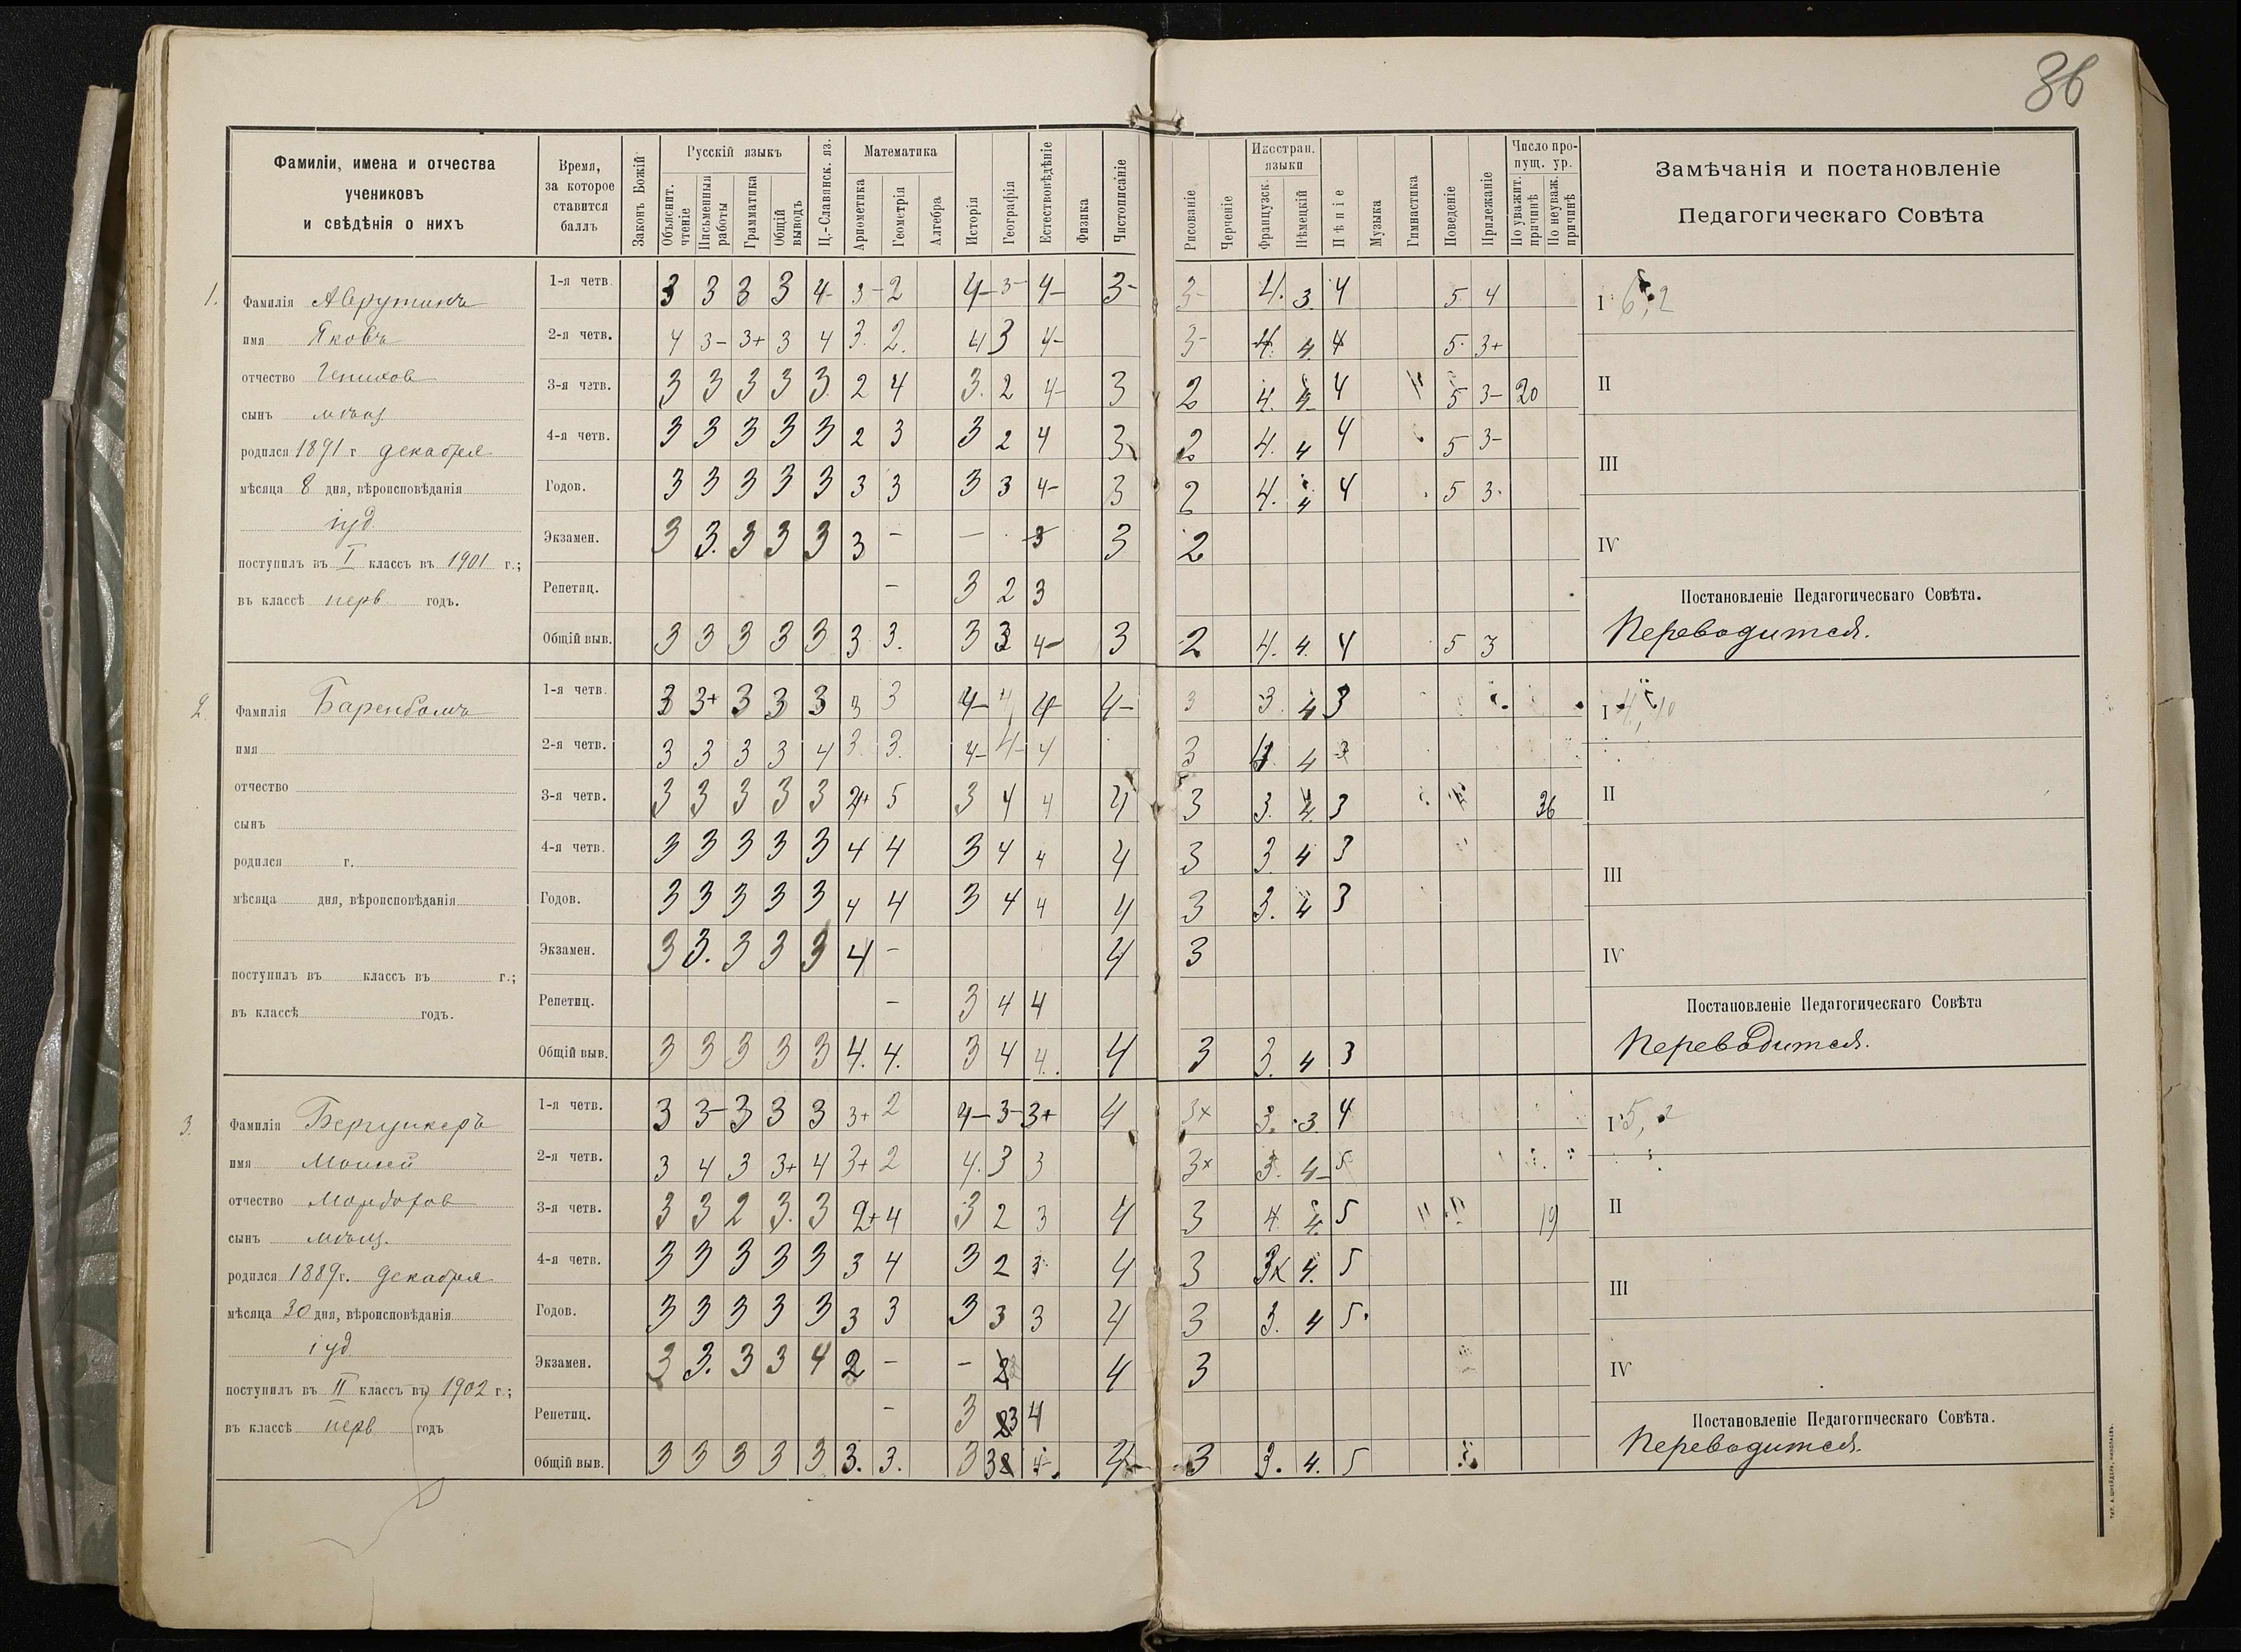 36
Фамиліи, имена и отчества
учениковъ
и свѣдѣнія о нихъ
Время,
за которое
ставится
баллъ
Законъ Божій
Русскій языкъ
Объяснит.
чтеніе
Письменныя
работы
Грамматика
Общій
выводъ
Ц.-Славянск. яз.
Математика
Арѳметика
Геометрія
Алгебра
Исторія
Географія
Естествовѣдѣніе
Физика
Чистописаніе
Рисованіе
Черченіе
Иностран.
языки
Французск.
Нѣмецкій
Пѣніе
Музыка
Гимнастика
Поведеніе
Прилежаніе
Число про-
пущ. ур.
По уважит.
причинѣ
По неуваж.
причинѣ
Замѣчанія и постановленіе
Педагогическаго Совѣта
1.
Фамилія Аврутинъ
имя Яковъ
отчество
сынъ мѣщ.
родился 1891 г декабря
мѣсяца 8 дня, вѣроисповѣданія
іуд
поступилъ въ I классъ въ 1901 г.;
въ классѣ перв годъ.
1-я четв. 3 3 3 3 4- 3- 2 4- 3- 4- 3- 3- 4. 3. 4 5 4
2-я четв. 4 3- 3+ 3 4 3. 2. 4 3 4- 3- 4. 4 4 5 3+
3-я четв. 3 3 3 3 3 2 4 3. 2 4- 3 2 4. 4 4 5 3- 20
4-я четв. 3 3 3 3 3 2 3 3 2 4 3 2 4. 4 4 5 3-
Годов. 3 3 3 3 3 3 3 3 3 4- 3 2 4. 4 4 5 3
Экзамен. 3 3. 3 3 3 3 - - 3 3 2
Репетиц. - 3 2 3
Общій выв. 3 3 3 3 3 3 3. 3 3 4- 3 2 4. 4. 4 5 3
I 6,2
II
III
IV
Постановленіе Педагогическаго Совѣта.
Переводится.
2.
Фамилія Баренбомъ
имя
отчество
сынъ
родился г.
мѣсяца дня, вѣроисповѣданія
поступилъ въ классъ въ г.;
въ классѣ годъ.
1-я четв. 3 3+ 3 3 3 3 3 4- 4 4- 4- 3 3. 4 3
2-я четв. 3 3 3 3 4 3. 3. 4- 4- 4 3 4 3
3-я четв. 3 3 3 3 3 4+ 5 3 4 4 4 3 3. 4. 3 36
4-я четв. 3 3 3 3 3 4 4 3 4 4 4 3 3 4 3
Годов. 3 3 3 3 3 4 4 3 4 4 4 3 3. 4 3
Экзамен. 3 3. 3 3 3 4 - 4 3
Репетиц. - 3 4 4
Общій выв. 3 3 3 3 3 4. 4. 3 4 4. 4 3 3. 4 3
I
II
III
IV
Постановленіе Педагогическаго Совѣта
Переводится.
3.
Фамилія Бергункеръ
имя Моисей
отчество Мордохов
сынъ мѣщ.
родился 1889 г. декабря
мѣсяца 30 дня, вѣроисповѣданія
іуд
поступилъ въ II классъ въ 1902 г.;
въ классѣ перв годъ
1-я четв. 3 3- 3 3 3 3+ 2 4- 3- 3+ 4 3x 3. 3. 4
2-я четв. 3 4 3 3+ 4 3+ 2 4. 3 3 3x 3. 4- 5
3-я четв. 3 3 2 3. 3 2+ 4 3 2 3 4 3 4. 4. 5 19
4-я четв. 3 3 3 3 3 3 4 3 2 3 4 3 3x 4. 5
Годов. 3 3 3 3 3 3 3 3 3 3 4 3 3. 4 5
Экзамен. 3 3. 3 3 4 2 - - 2 4 3
Репетиц. - 3 23 4
Общій выв. 3 3 3 3 3 3. 3. 3 3 3 3. 4. 5
I 5,2
II
III
IV
Постановленіе Педагогическаго Совѣта.
Переводится.
ТИП. А. ШНЕЙДЕРА, НИКОЛАЕВЪ.